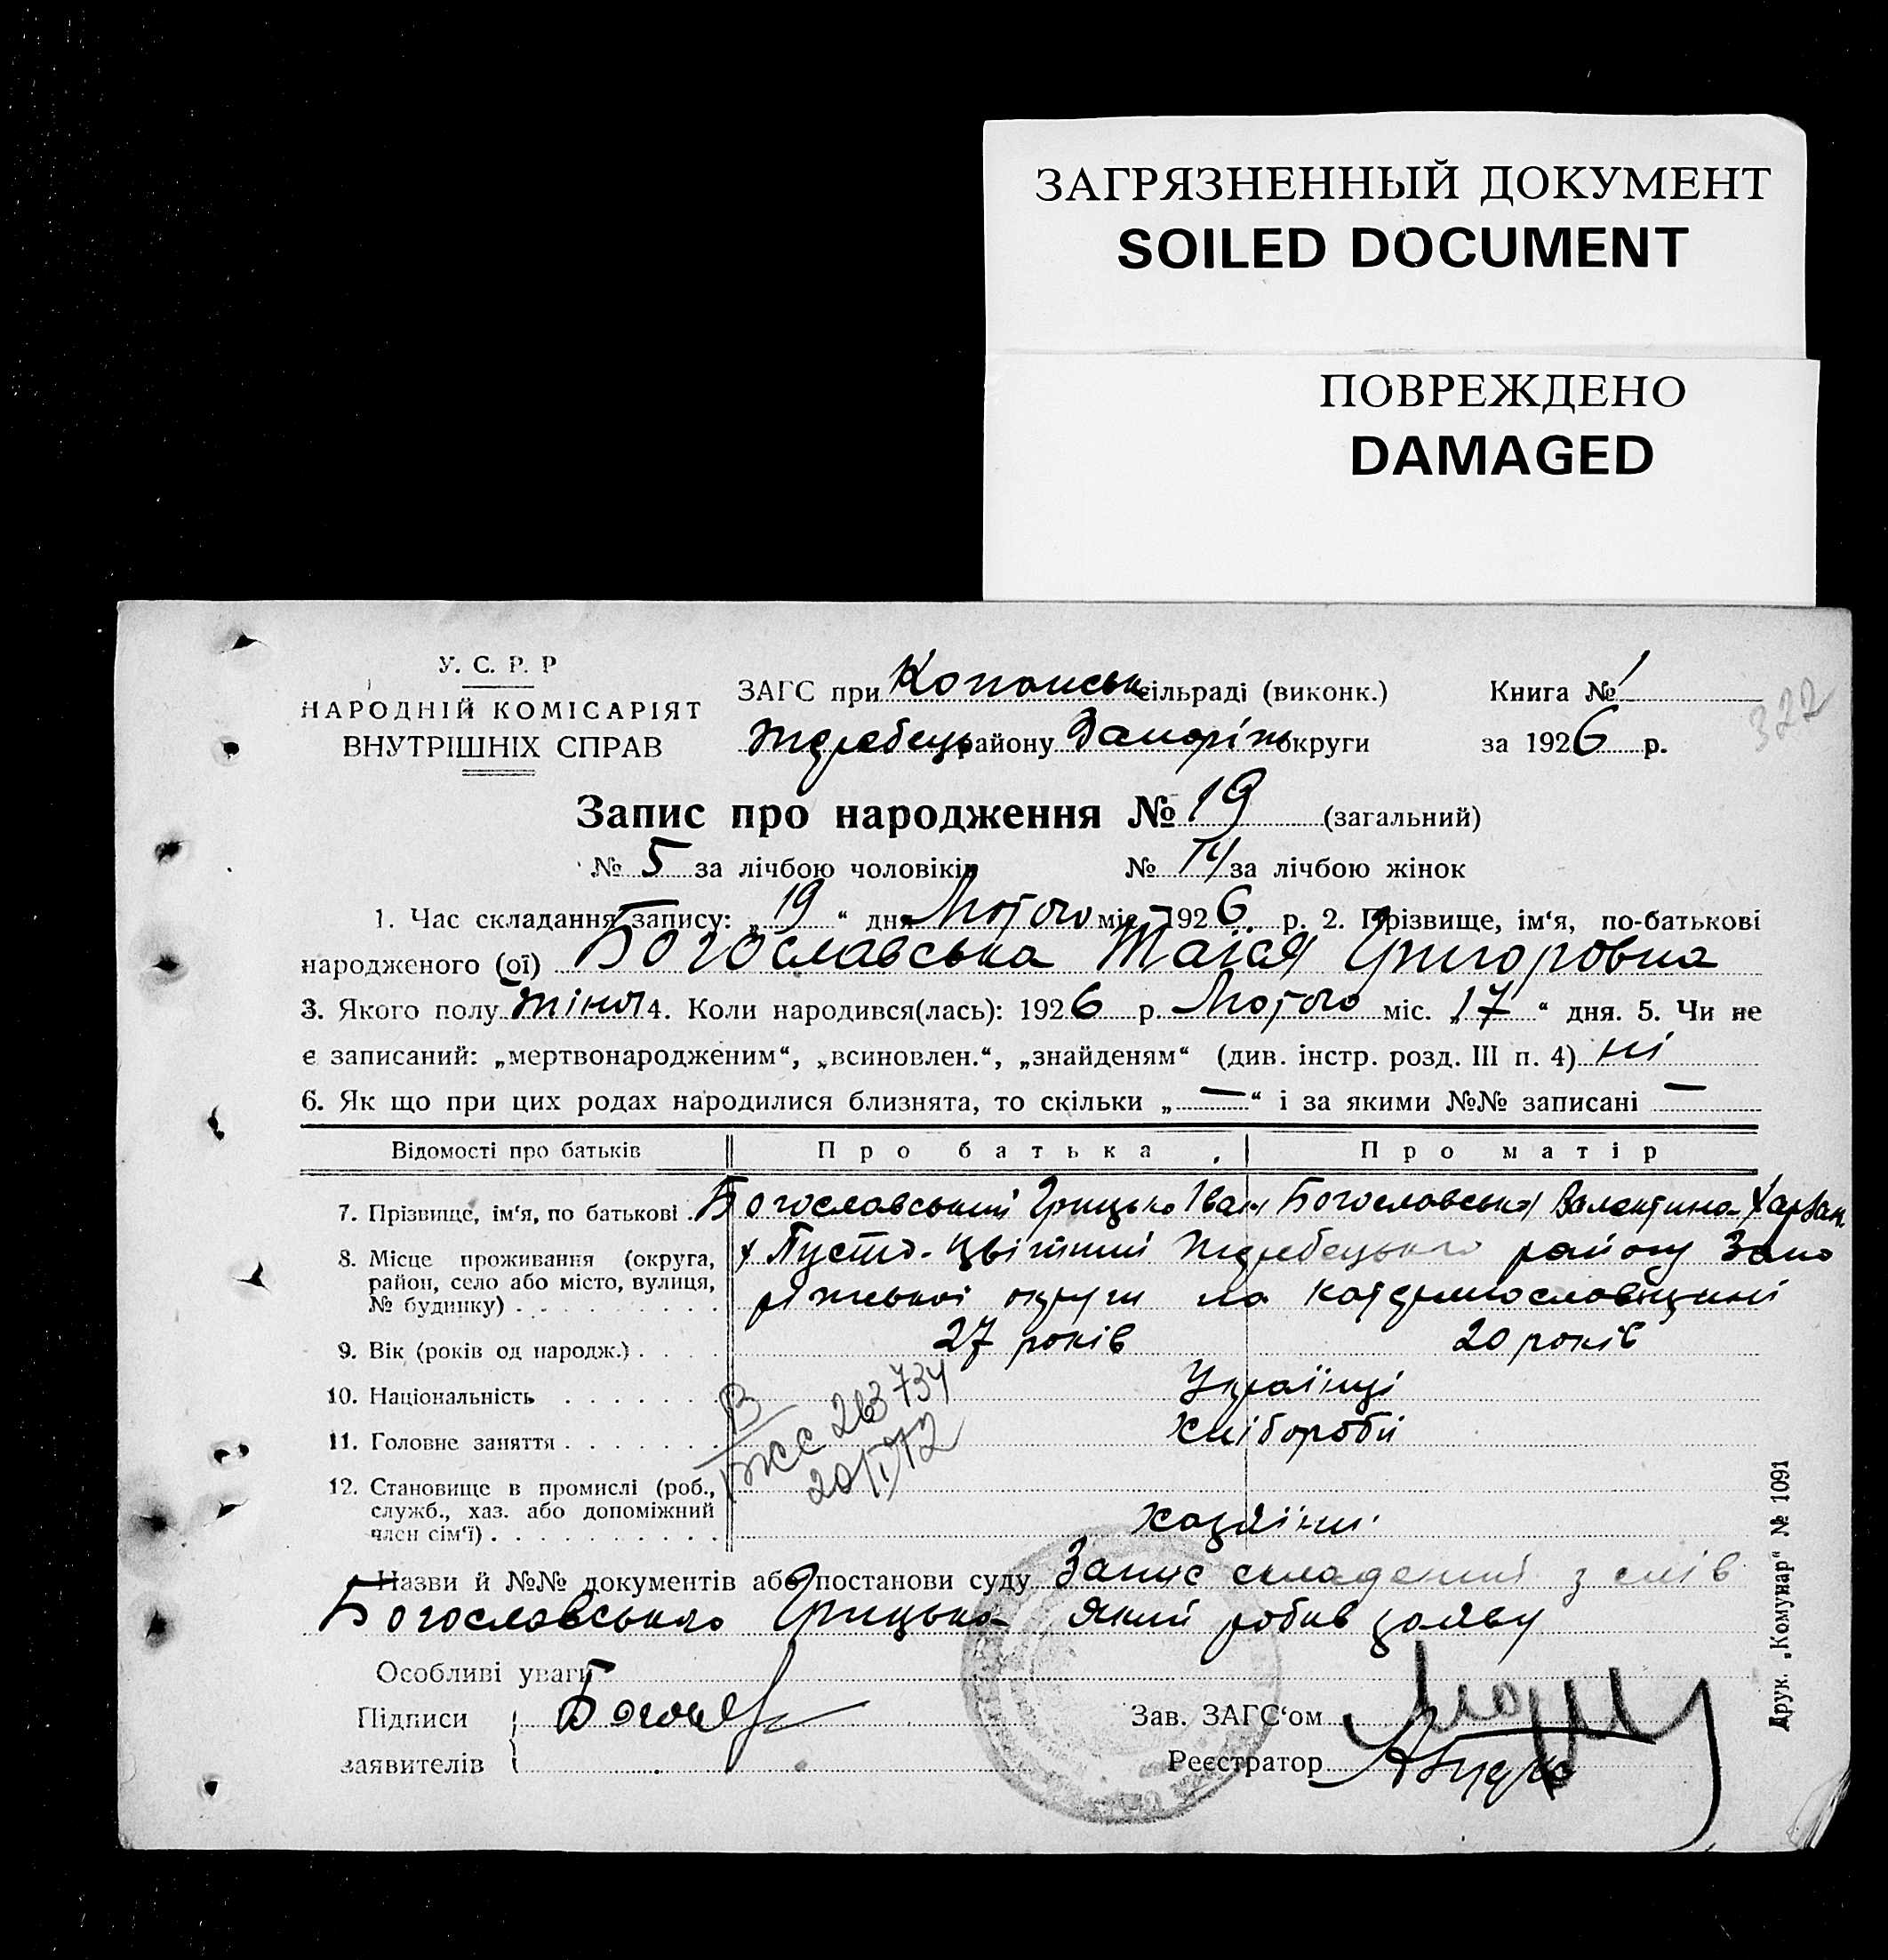 ЗАГРЯЗНЕННЫЙ ДОКУМЕНТ
SOILED DOCUMENT
ПОВРЕЖДЕНО
DAMAGED
У. С. Р. Р
НАРОДНІЙ КОМІСАРІЯТ
ВНУТРІШНІХ СПРАВ
ЗАГС при Копанськ сільраді (виконк.) Книга № 1
Жеребець району Запоріж округи за 1926 р.
322
Запис про народження № 19 (загальний)
№ 5 за лічбою чоловіків № 14 за лічбою жінок
1. Час складання запису: „19“ дня Лютого міс. 1926 р. 2. Прізвище, ім‘я, по-батькові
народженого (ої) Богославська Таїся Григоровна
3. Якого полу жіноч 4. Коли народився(лась): 1926 р. Лютого міс. „17“ дня. 5. Чи не
є записаний: „мертвонародженим“, „всиновлен.“, „знайденям“ (див. інстр. розд. III п. 4) ні
6. Як що при цих родах народилися близнята, то скільки „—“ і за якими №№ записані —
Відомості про батьків Про батька Про матір
7. Прізвище, ім‘я, по батькові Богославський Грицько Іван Богославська Валентина Харлам.
8. Місце проживання (округа, район, село або місто, вулиця, № будинку) х Пусто-Цвітний Жеребецького району Запо
ріжської округи на Катеринославщині
9. Вік (років од народж.) 27 років 20 років
10. Національність Українці
11. Головне заняття Хлібороби
В
ЖСС 263734
12. Становище в промислі (роб.,
служб., хаз. або допоміжний
член сім‘ї) хазяїни.
Назви й №№ документів або постанови суду Запис складений з слів
Богославського Грицька який робив заяву
Особливі уваги
Підписи
заявителів
Зав. ЗАГС‘ом
Реєстратор
Друк. „Комунар“ № 1091